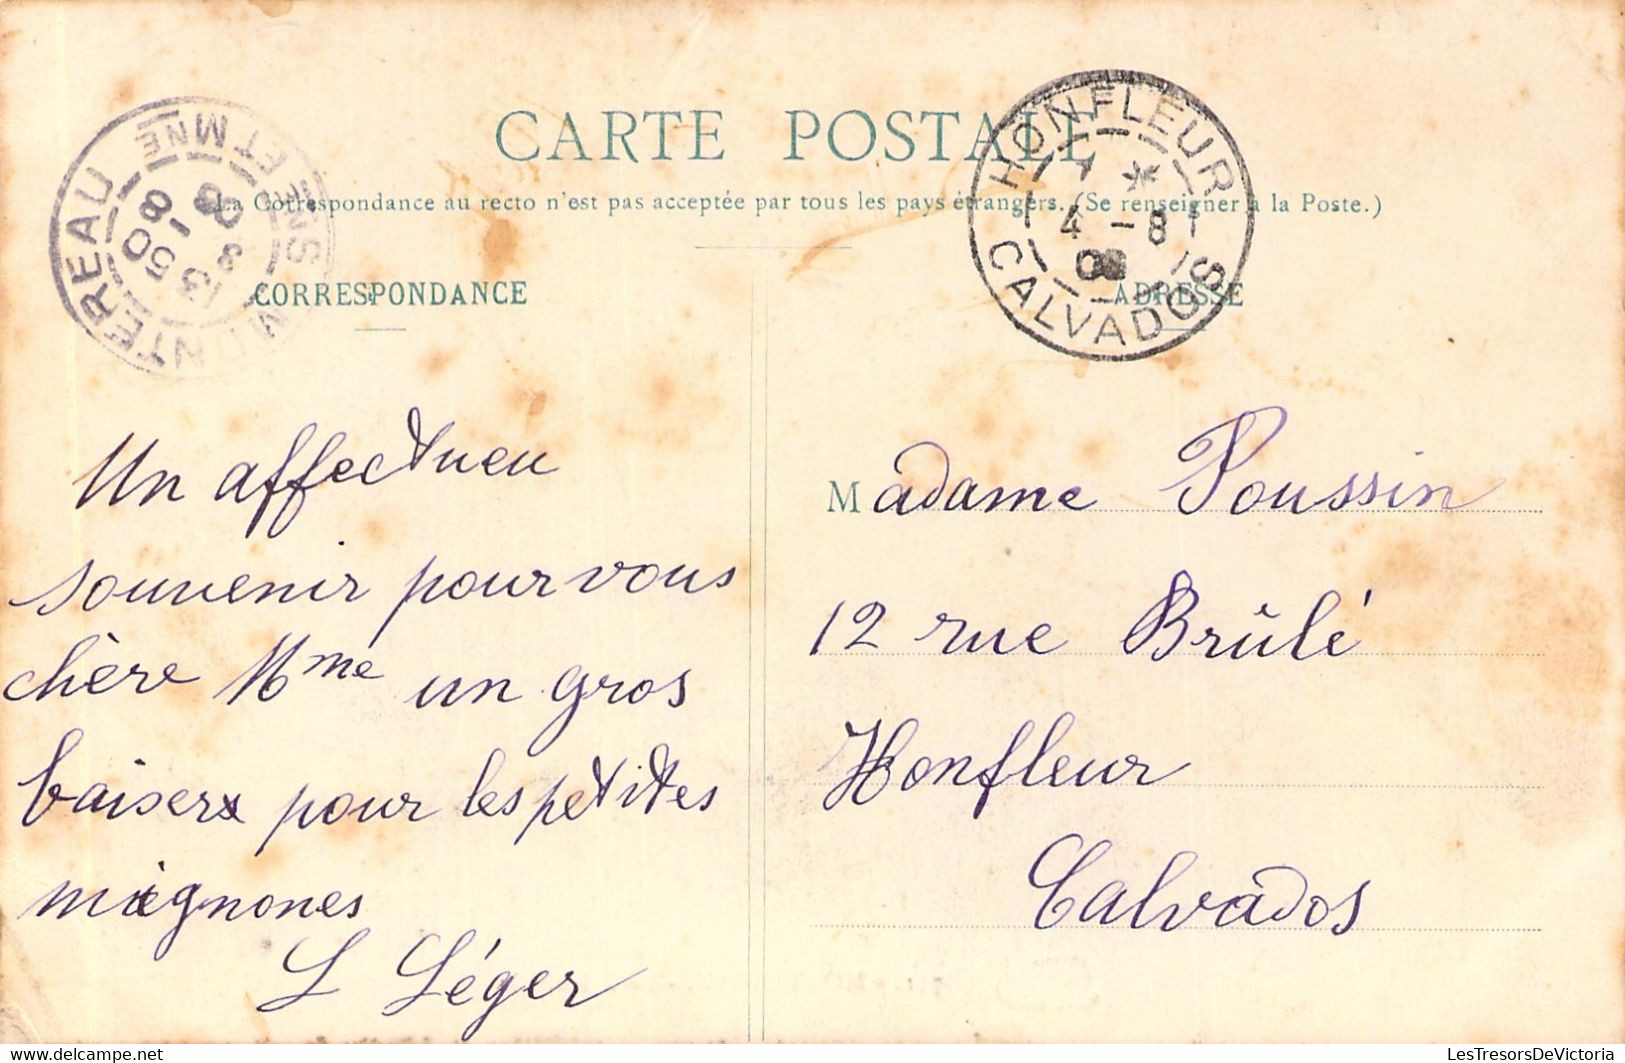 CARTE POSTALE
La Correspondance au recto n'est pas acceptée par tous les pays étrangers. (Se renseigner à la Poste.)
MONTEREAU
SNE ET MNE
13 50
3 - 8
08
HONFLEUR
4 - 8
CALVADOS
CORRESPONDANCE
ADRESSE
Un affectueu
souvenir pour vous
chère Mme un gros
baiser pour les petites
mignones
L Léger
Madame Poussin
12 rue Brûlé
Honfleur
Calvados
LesTresorsDeVictoria.delcampe.net
LesTresorsDeVictoria